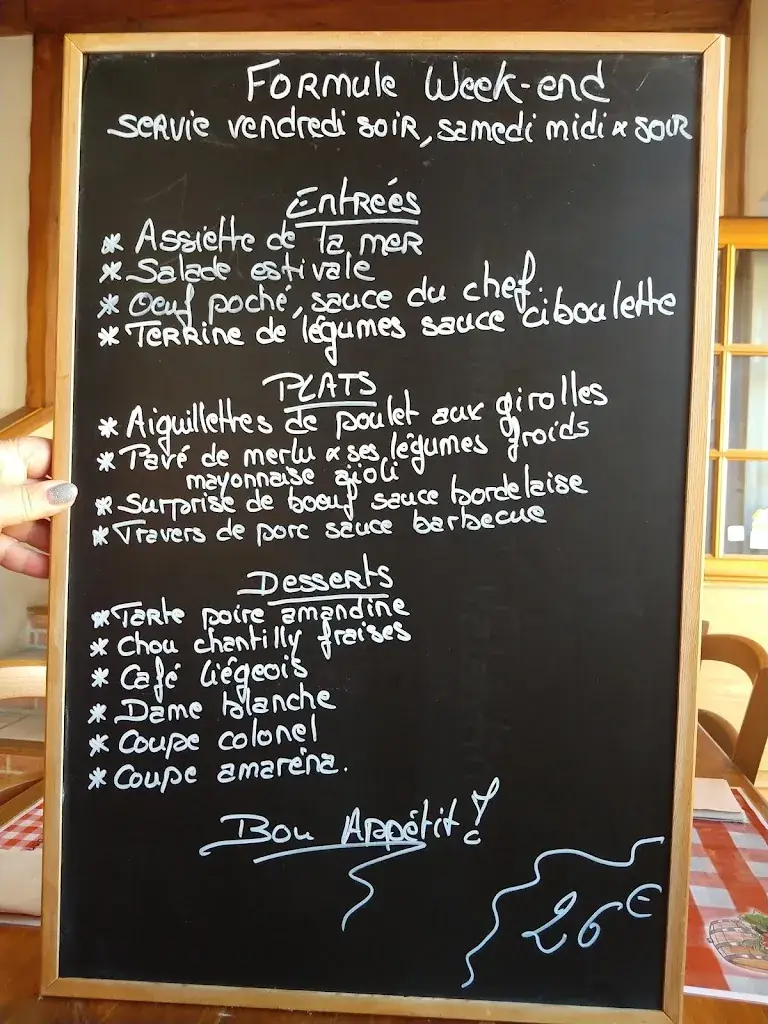 Formule Week-end
servie vendredi soir, samedi midi & soir
Entrées
* Assiette de la mer
* Salade estivale
* Oeuf poché, sauce du chef.
* Terrine de légumes sauce ciboulette
PLATS
* Aiguillettes de poulet aux girolles
* Pavé de merlu & ses légumes froids
mayonnaise aïoli
* Surprise de boeuf sauce bordelaise
* Travers de porc sauce barbecue
Desserts
* Tarte poire amandine
* Chou chantilly fraises
* Café liégeois
* Dame blanche
* Coupe colonel
* Coupe amaréna.
Bon Appétit !
26€